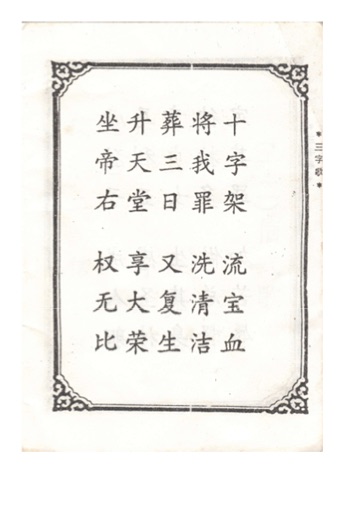 *三字歌*
十字架 流宝血
将我罪 洗清洁
葬三日 又复生
升天堂 享大荣
坐帝右 权无比